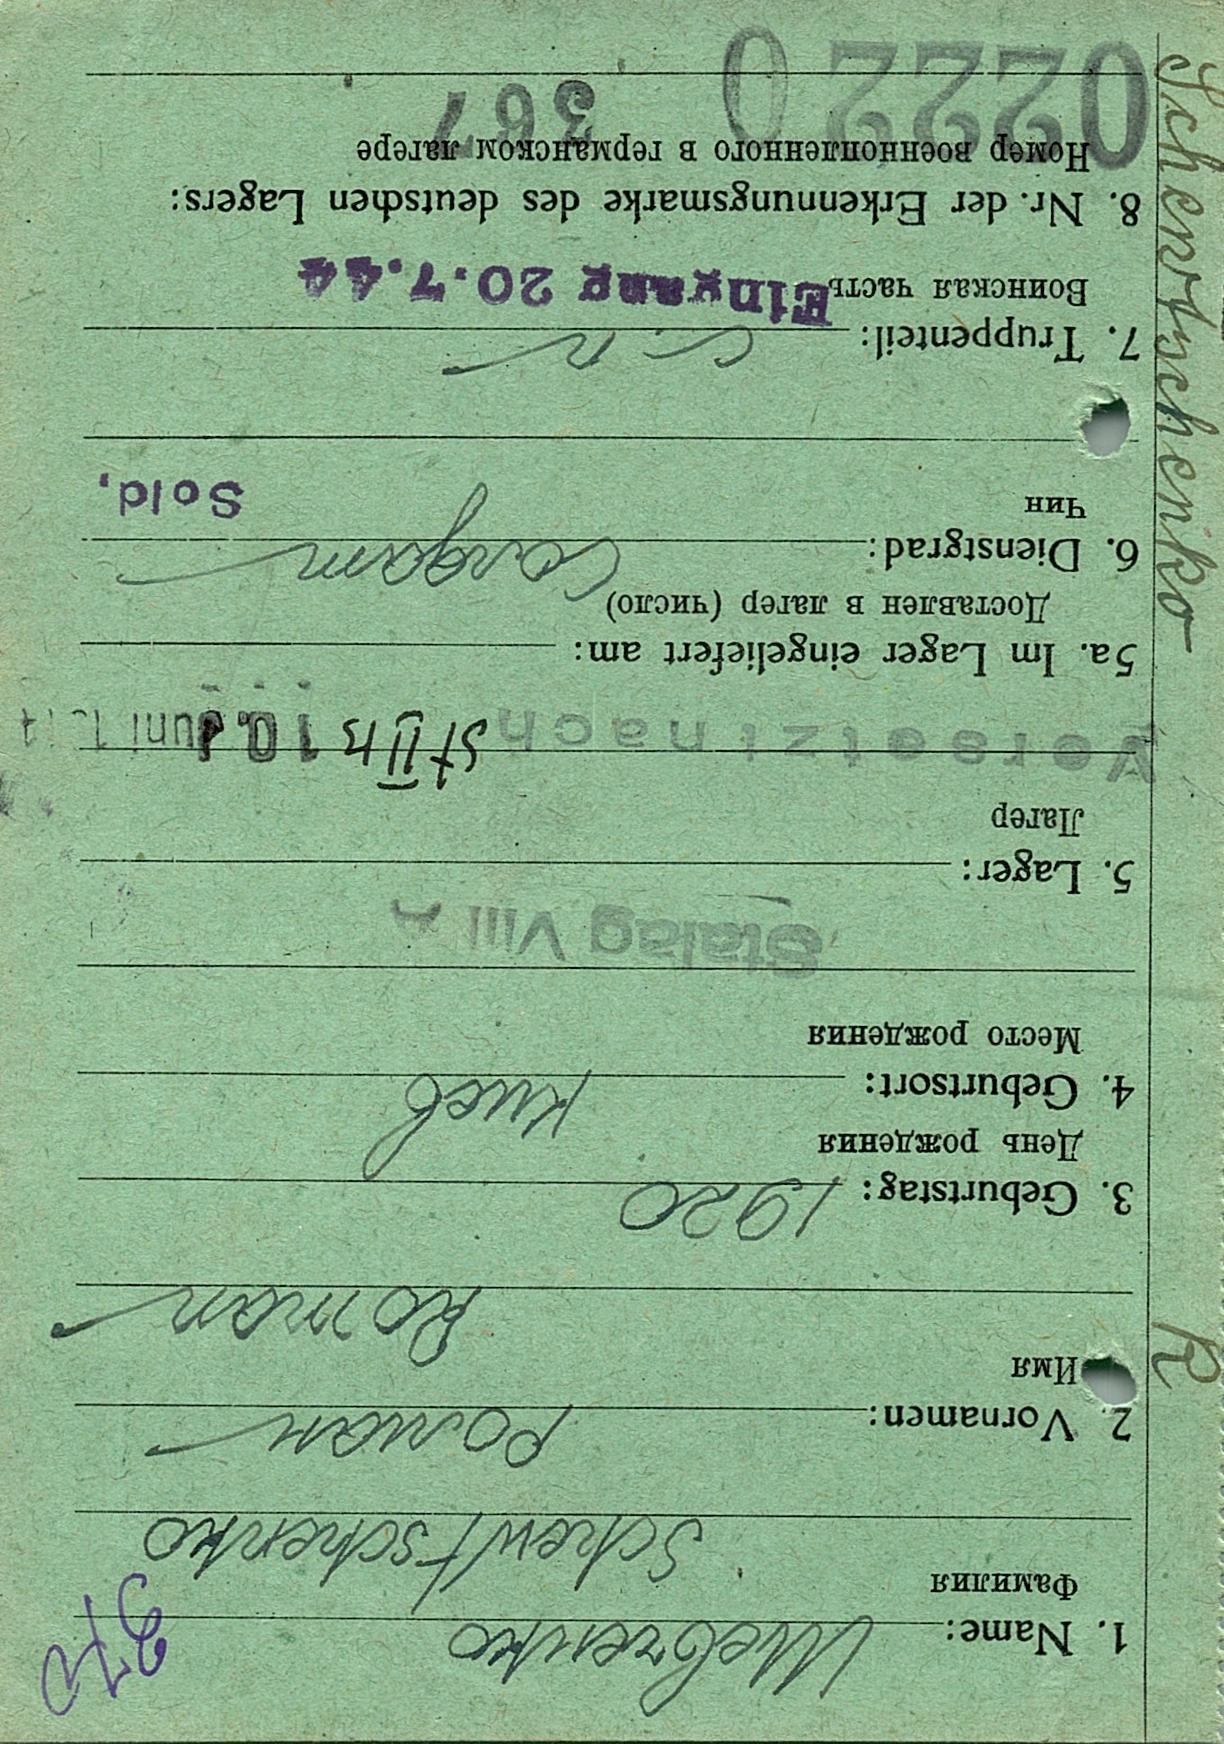 1. Name: Шевченко
Фамилия
Schewtschenko
2. Vornamen: Роман
Имя
Roman
3. Geburtstag: 1920
День рождения
4. Geburtsort: Киев
Место рождения
Stalag VIII A
5. Lager:
Лагер
Versetzt nach St II B 10. Juni
5a. Im Lager eingeliefert am:
Доставлен в лагер (число)
6. Dienstgrad: Солдат
Чин
Sold.
7. Truppenteil:
Воинская часть Eingang 20.7.44
8. Nr. der Erkennungsmarke des deutschen Lagers:
Номер военнопленного в германском лагере
367
02220
R